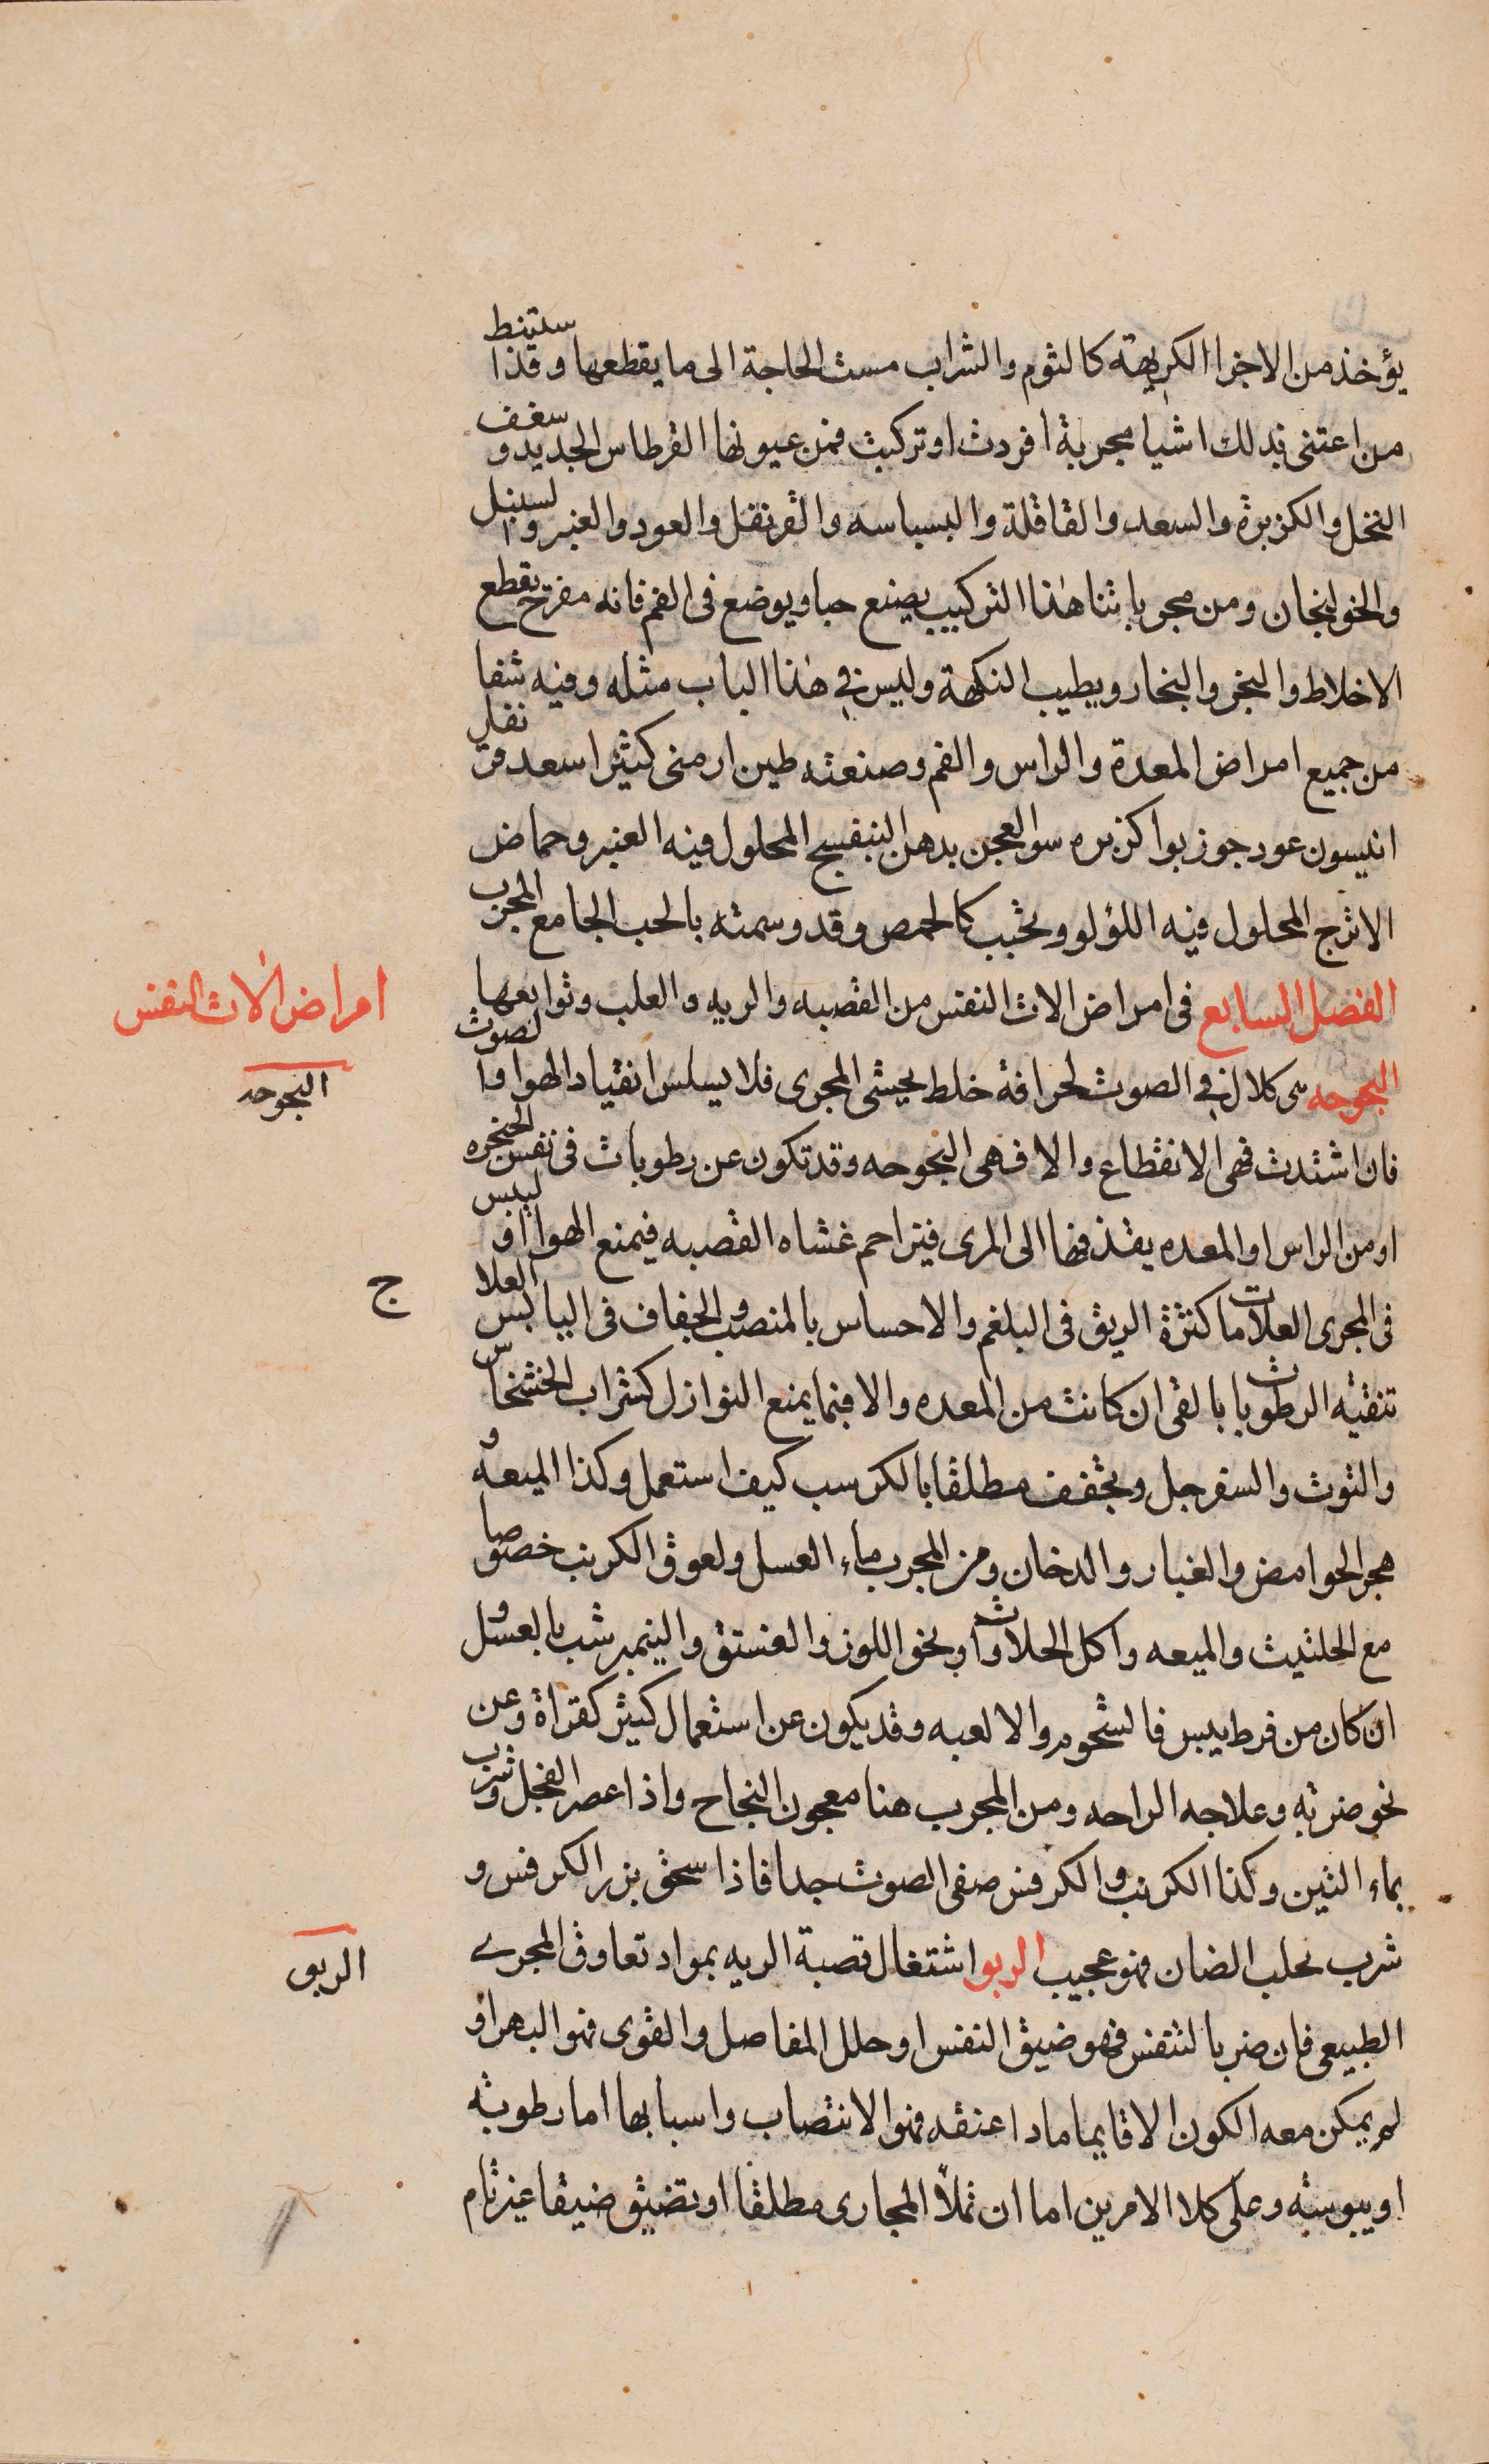 يؤخذ من الاجزا الكريهة كالثوم والشراب مست الحاجة الى ما يقطعها وقد استنبط
من اعتنى بذلك اشيا مجربة افردت او تركبت فمن عيونها القرطاس الجديد وسعف
النخل والكزبرة والسعد والقاقلة والبسباسه والقرنفل والعود والعنبر والسنبل
والخولنجان ومن مجرباتنا هذا التركيب يصنع حبا ويوضع فى الفم فانه مفرح يقطع
الاخلاط والبخر والبخار ويطيب النكهة وليس في هذا الباب مثله وفيه شفا
من جميع امراض المعدة والراس والفم وصنعته طين ارمنى كثيرا سعد قرنفل
انيسون عود جوز بوا كزبره سوا لعجن بدهن البنفسج المحلول فيه العنبر وحماض
الاترج المحلول فيه اللؤلو ويحبب كالحمص وقد وسمته بالحب الجامع المجرب
الفصل السابع فى امراض الات النفس من القصبه والريه والعلب وتوابعها
امراض الات النفس
البحوحه هى كلال في الصوت لحرافة خلط يحشى المجرى فلا يسلس انقياد الهوا والصوت
البحوحه
فان اشتدت فهى الانقطاع والا فهى البحوحه وقد تكون عن رطوبات فى نفس الحنجره
او من الراس او المعده يقذفها الى المرى فيتراحم غشاه القصبه فيمنع الهوا او ليبس
فى المجرى العلامات كثرة الريق فى البلغم والاحساس بالمنصب والجفاف فى اليابس العلا
ج
تنقية الرطوبات بالقى ان كانت من المعده والا فبما يمنع النوازل كشراب الخشخاس
والتوت والسفرجل ويجفف مطلقا بالكرسب كيف استعمل وكذا الميعه و
هجر الحوامض والغبار والدخان ومن المجرب ماء العسل ولعوق الكرنب خصوصا
مع الحلتيت والميعه واكل الحلاوات ونحو اللوز والفستق والنيمبرشت بالعسل و
ان كان من فرط يبس فالشحوم والالعبه وقد يكون عن استعمال كثير كقراة وعن
نحو ضربه وعلاجه الراحه ومن المجرب هنا معجون النجاح واذا عصر الفجل وشرب
بماء التين وكذا الكرنب والكرفس صفى الصوت جدا فاذا سحق بزر الكرفس و
شرب بحلب الضان فهو عجيب الربو اشتغال قصبة الريه بمواد تعاوق المجرى
الربو
الطبيعى فان ضر بالتنفس فهو ضيق النفس او حلل المفاصل والقوى فهو البهر او
لم يمكن معه الكون الا قايما مادا عنقه فهو الانتصاب واسبابها اما رطوبة
او يبوسة وعلى كلا الامرين اما ان تملأ المجارى مطلقا او تضيق ضيقا غير تام